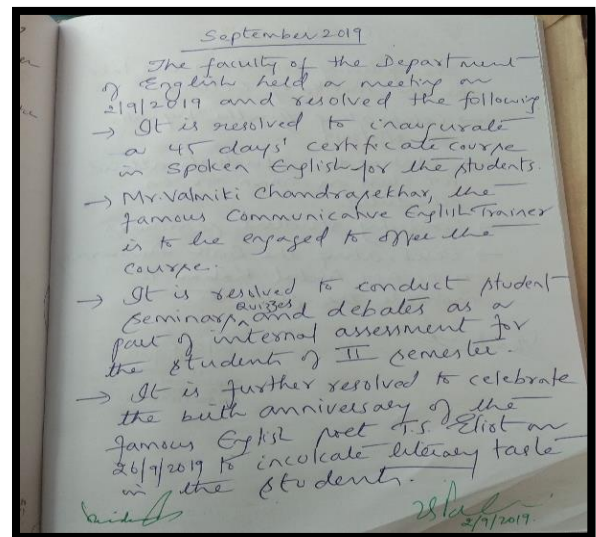 September 2019
The faculty of the Department
of English held a meeting on
2/9/2019 and resolved the following
→ It is resolved to inaugurate
a 45 days' certificate course
in Spoken English for the students.
→ Mr. Valmiki Chandrasekhar, the
famous Communicative English Trainer
is to be engaged to offer the
course.
→ It is resolved to conduct student
seminars, quizzes and debates as a
part of internal assessment for
the students of II semester.
→ It is further resolved to celebrate
the birth anniversary of the
famous English poet T.S. Eliot on
26/9/2019 to incolcate literary taste
in the students.
2/9/2019.